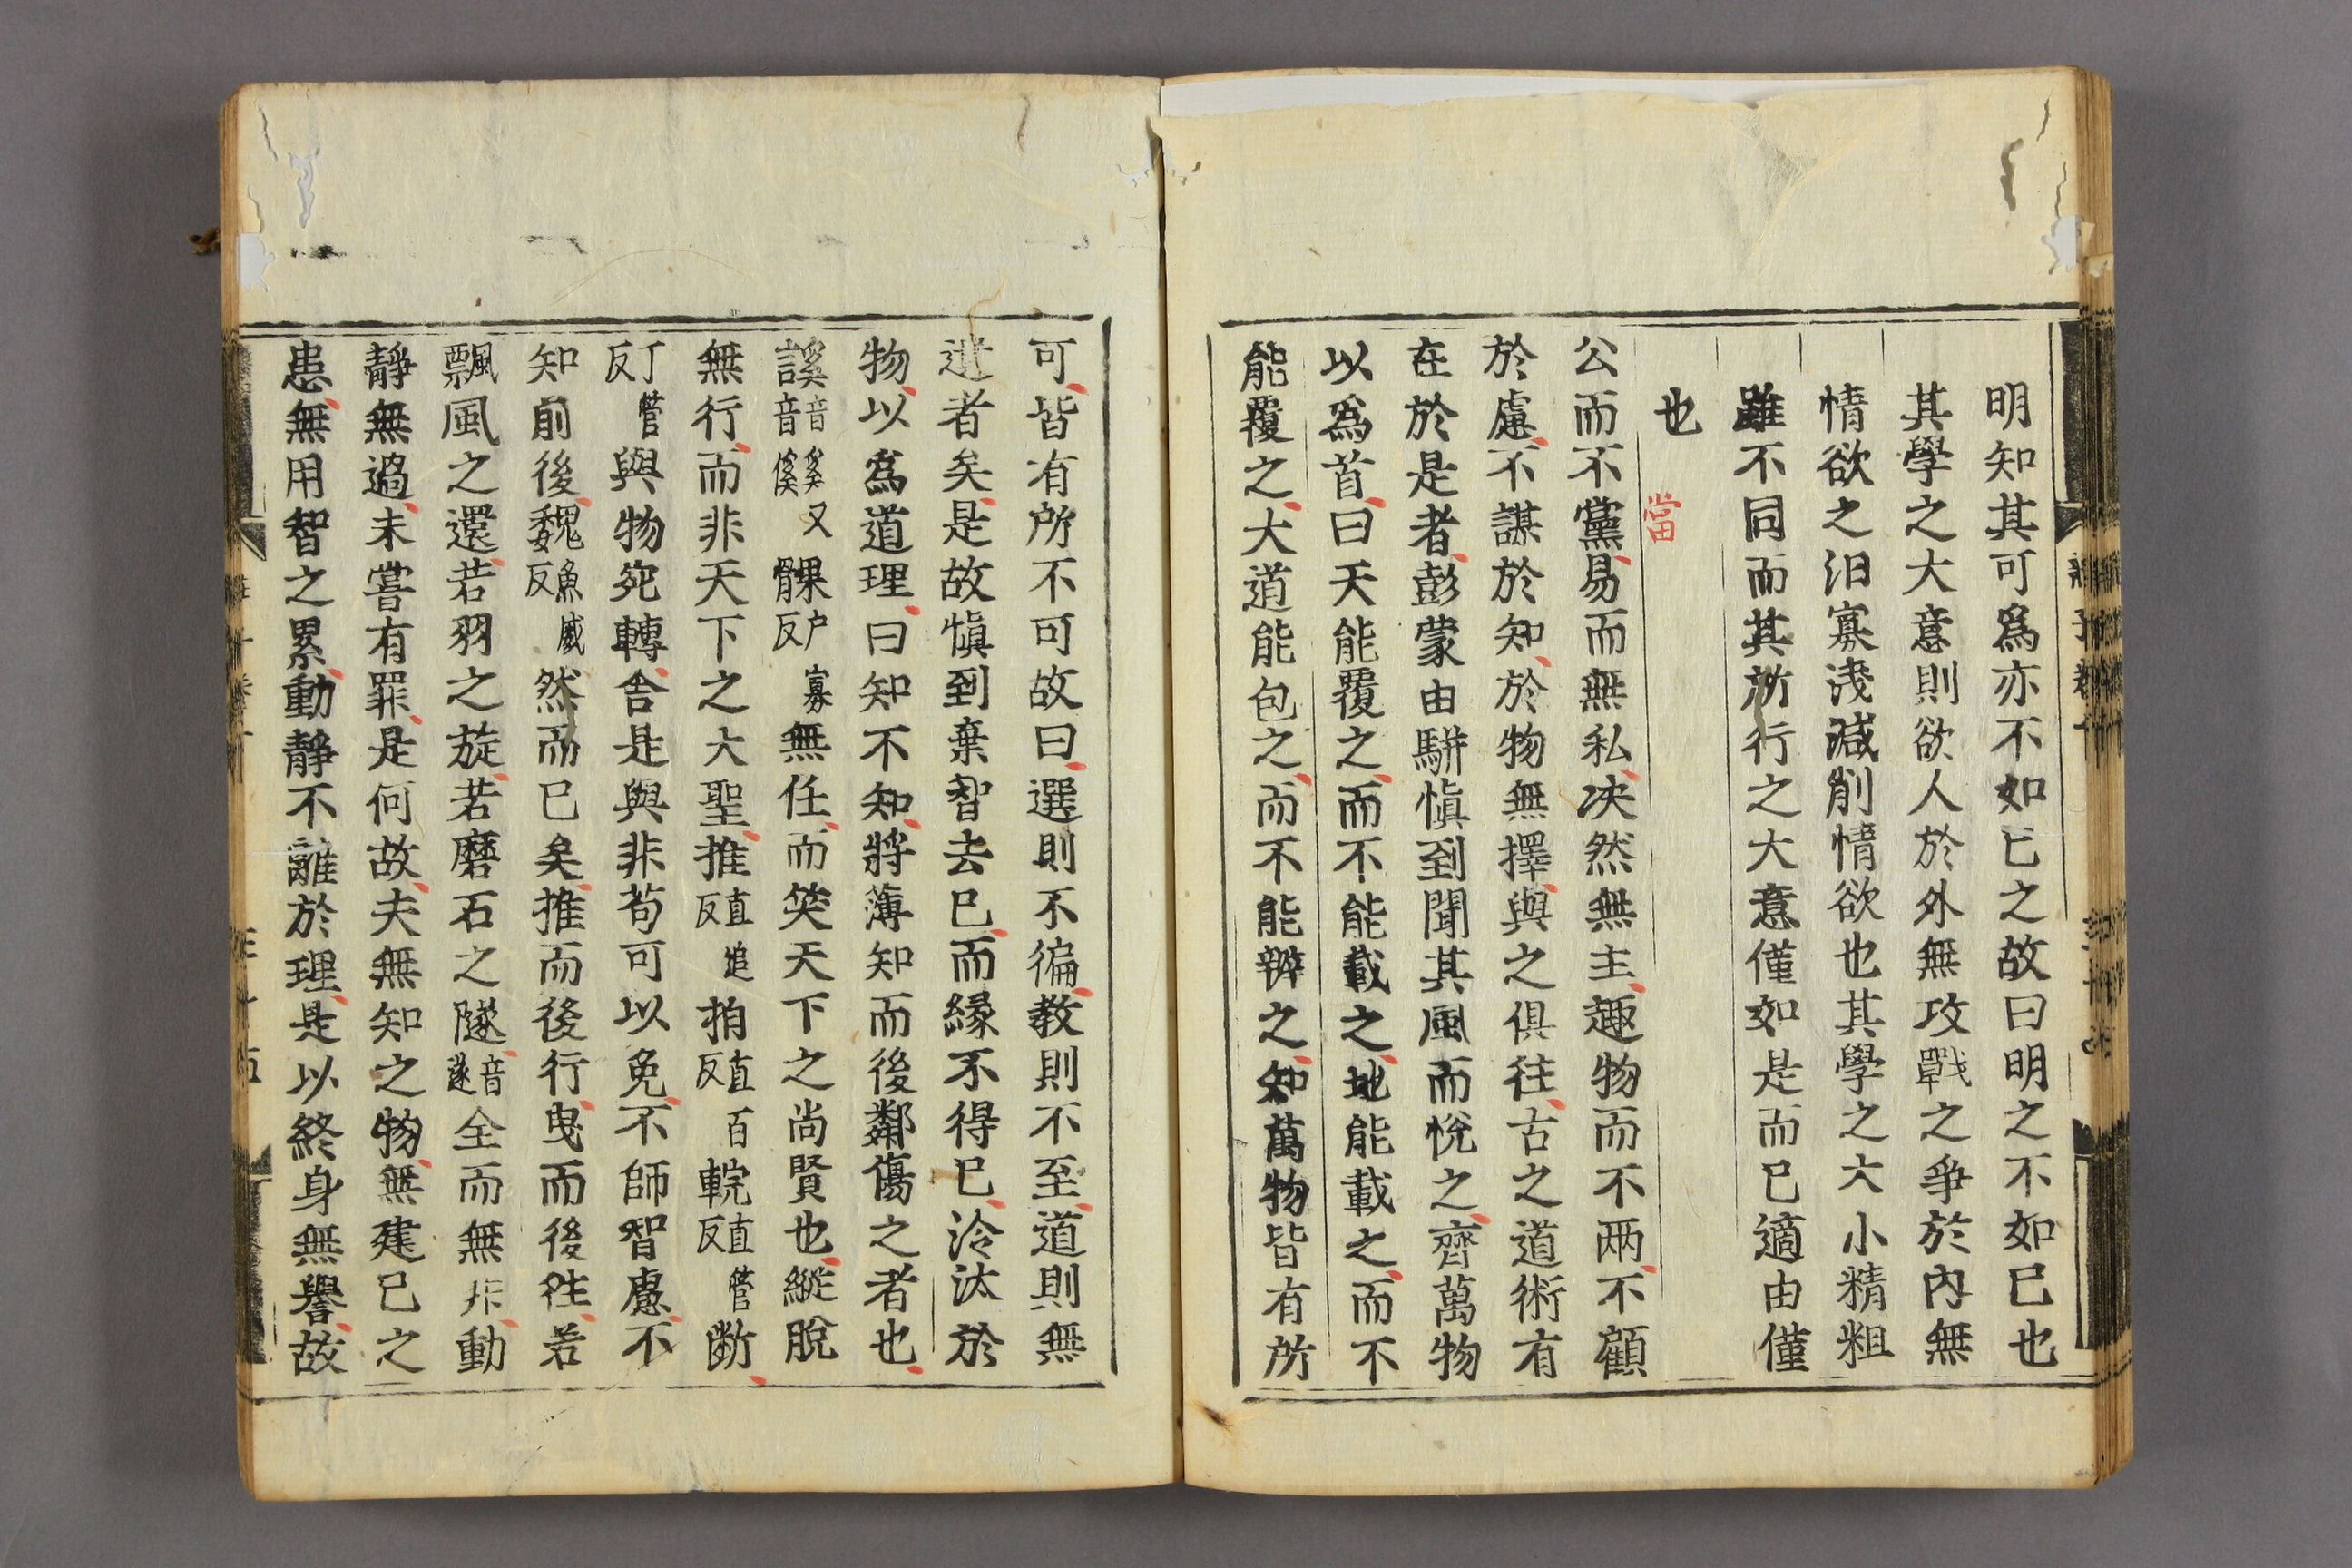 明知其可爲亦不如已之故曰明之不如已也
其學之大意則欲人於外無攻戰之爭於內無
情欲之汩寡淺減削情欲也其學之大小精粗
雖不同而其所行之大意僅如是而已適由僅
也
當
公而不黨易而無私决然無主趣物而不兩不顧
於慮不謀於知於物無擇與之俱往古之道術有
在於是者彭蒙田駢愼到聞其風而悅之齊萬物
以爲首曰天能覆之而不能載之地能載之而不
能覆之大道能包之而不能辨之知萬物皆有所
可皆有所不可故曰選則不徧教則不至道則無
遺者矣是故愼到棄智去已而緣不得已泠汰於
物以爲道理曰知不知將薄知而後鄰傷之者也
謑音奚又音傒髁戶寡反無任而笑天下之尚賢也縱脫
無行而非天下之大聖推直追反拍直百反輐直管反斷
丁管反與物宛轉舍是與非苟可以免不師智慮不
知前後魏魚威反然而已矣推而後行曳而後往若
飄風之還若羽之旋若磨石之隧音遂全而無非動
靜無過未嘗有罪是何故夫無知之物無建已之
患無用智之累動靜不離於理是以終身無譽故